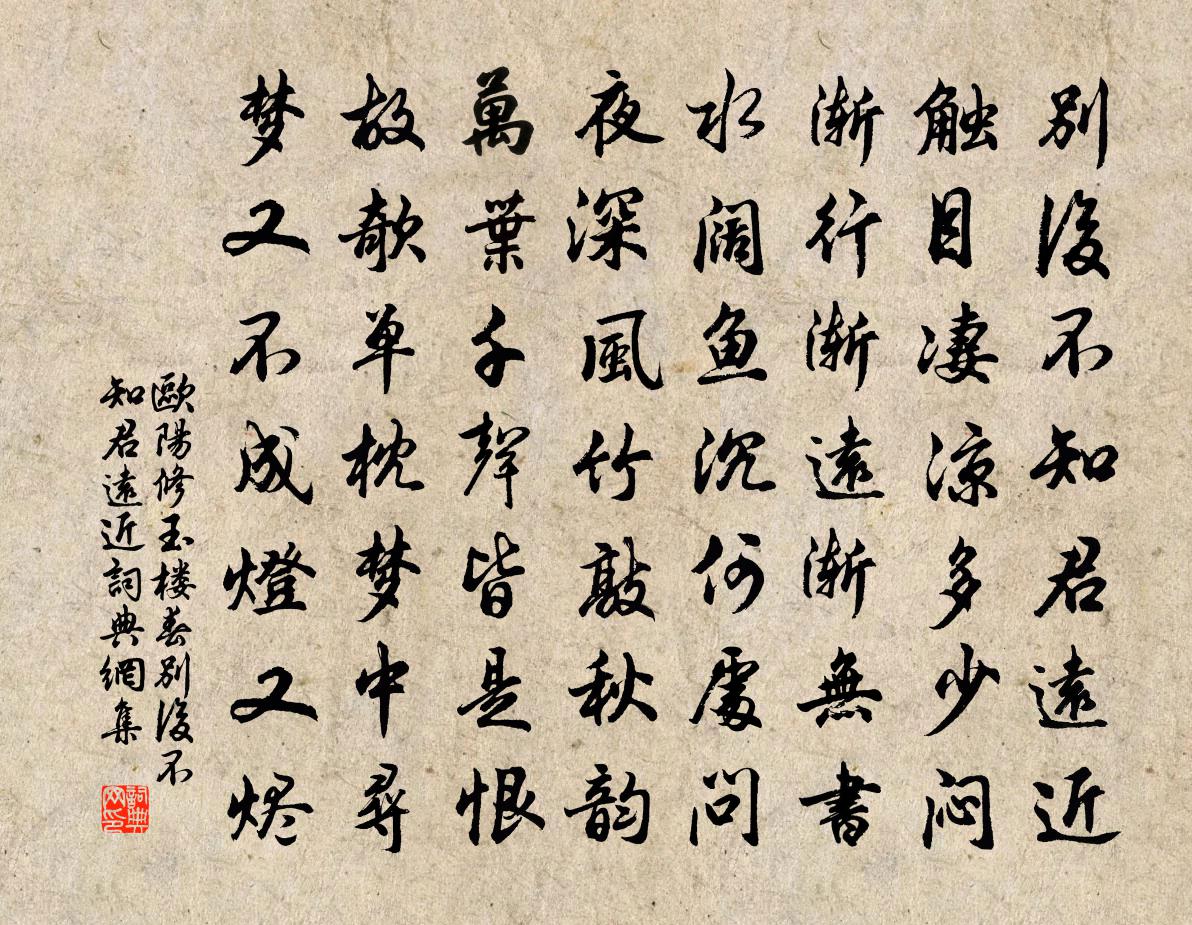 别後不知君遠近
触目凄凉多少闷
渐行渐遠渐無書
水阔鱼沉何處問
夜深風竹敲秋韵
萬葉千聲皆是恨
故欹单枕梦中尋
梦又不成燈又烬
歐陽修玉楼春别後不
知君遠近詞典網集
詞典网印